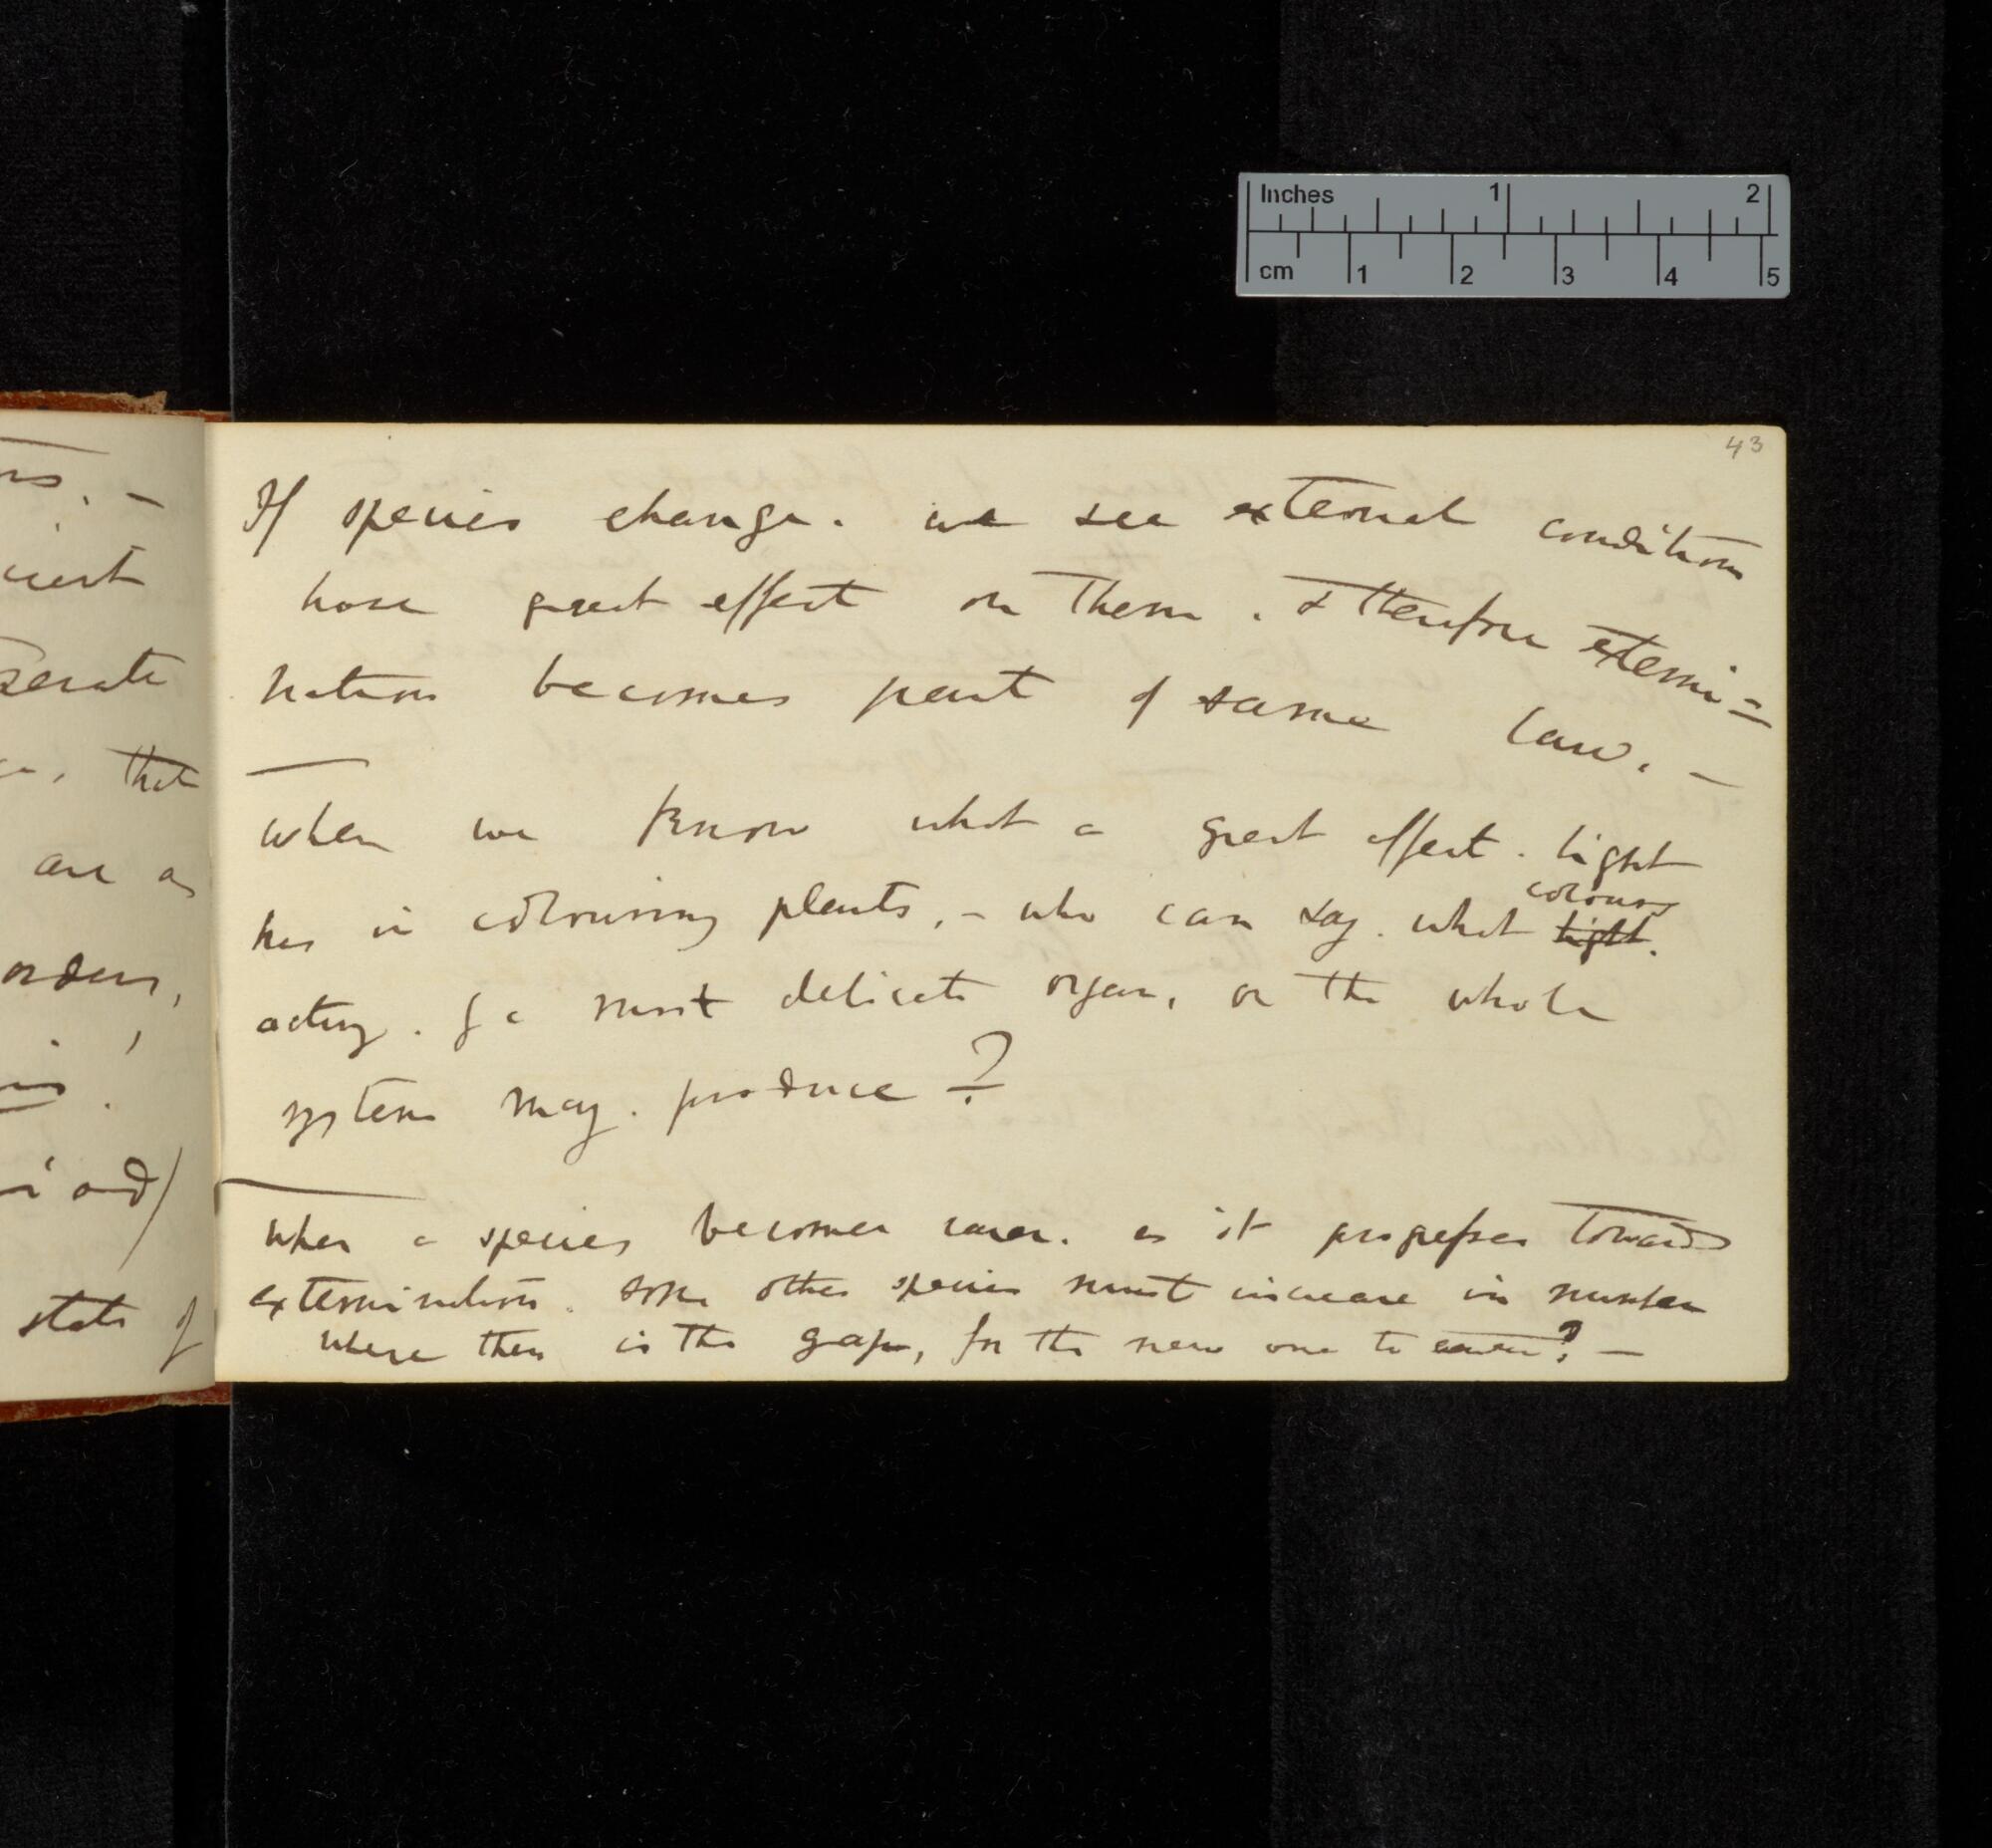 Inches 1 2
cm 1 2 3 4 5
43
If species change. we see external conditions
have great effect on them. & therefore extermi=
nation becomes part of same law. —
When we know what a great effect. light
has in colouring plants, – who can say. what colours light.
acting. of a most delicate organ, on the whole
system may. produce?
When a species becomes rarer. as it progresses towards
extermination. some other species must increase in number
where then is the gap, for the new one to enter? —
that
are a
orders,
state of